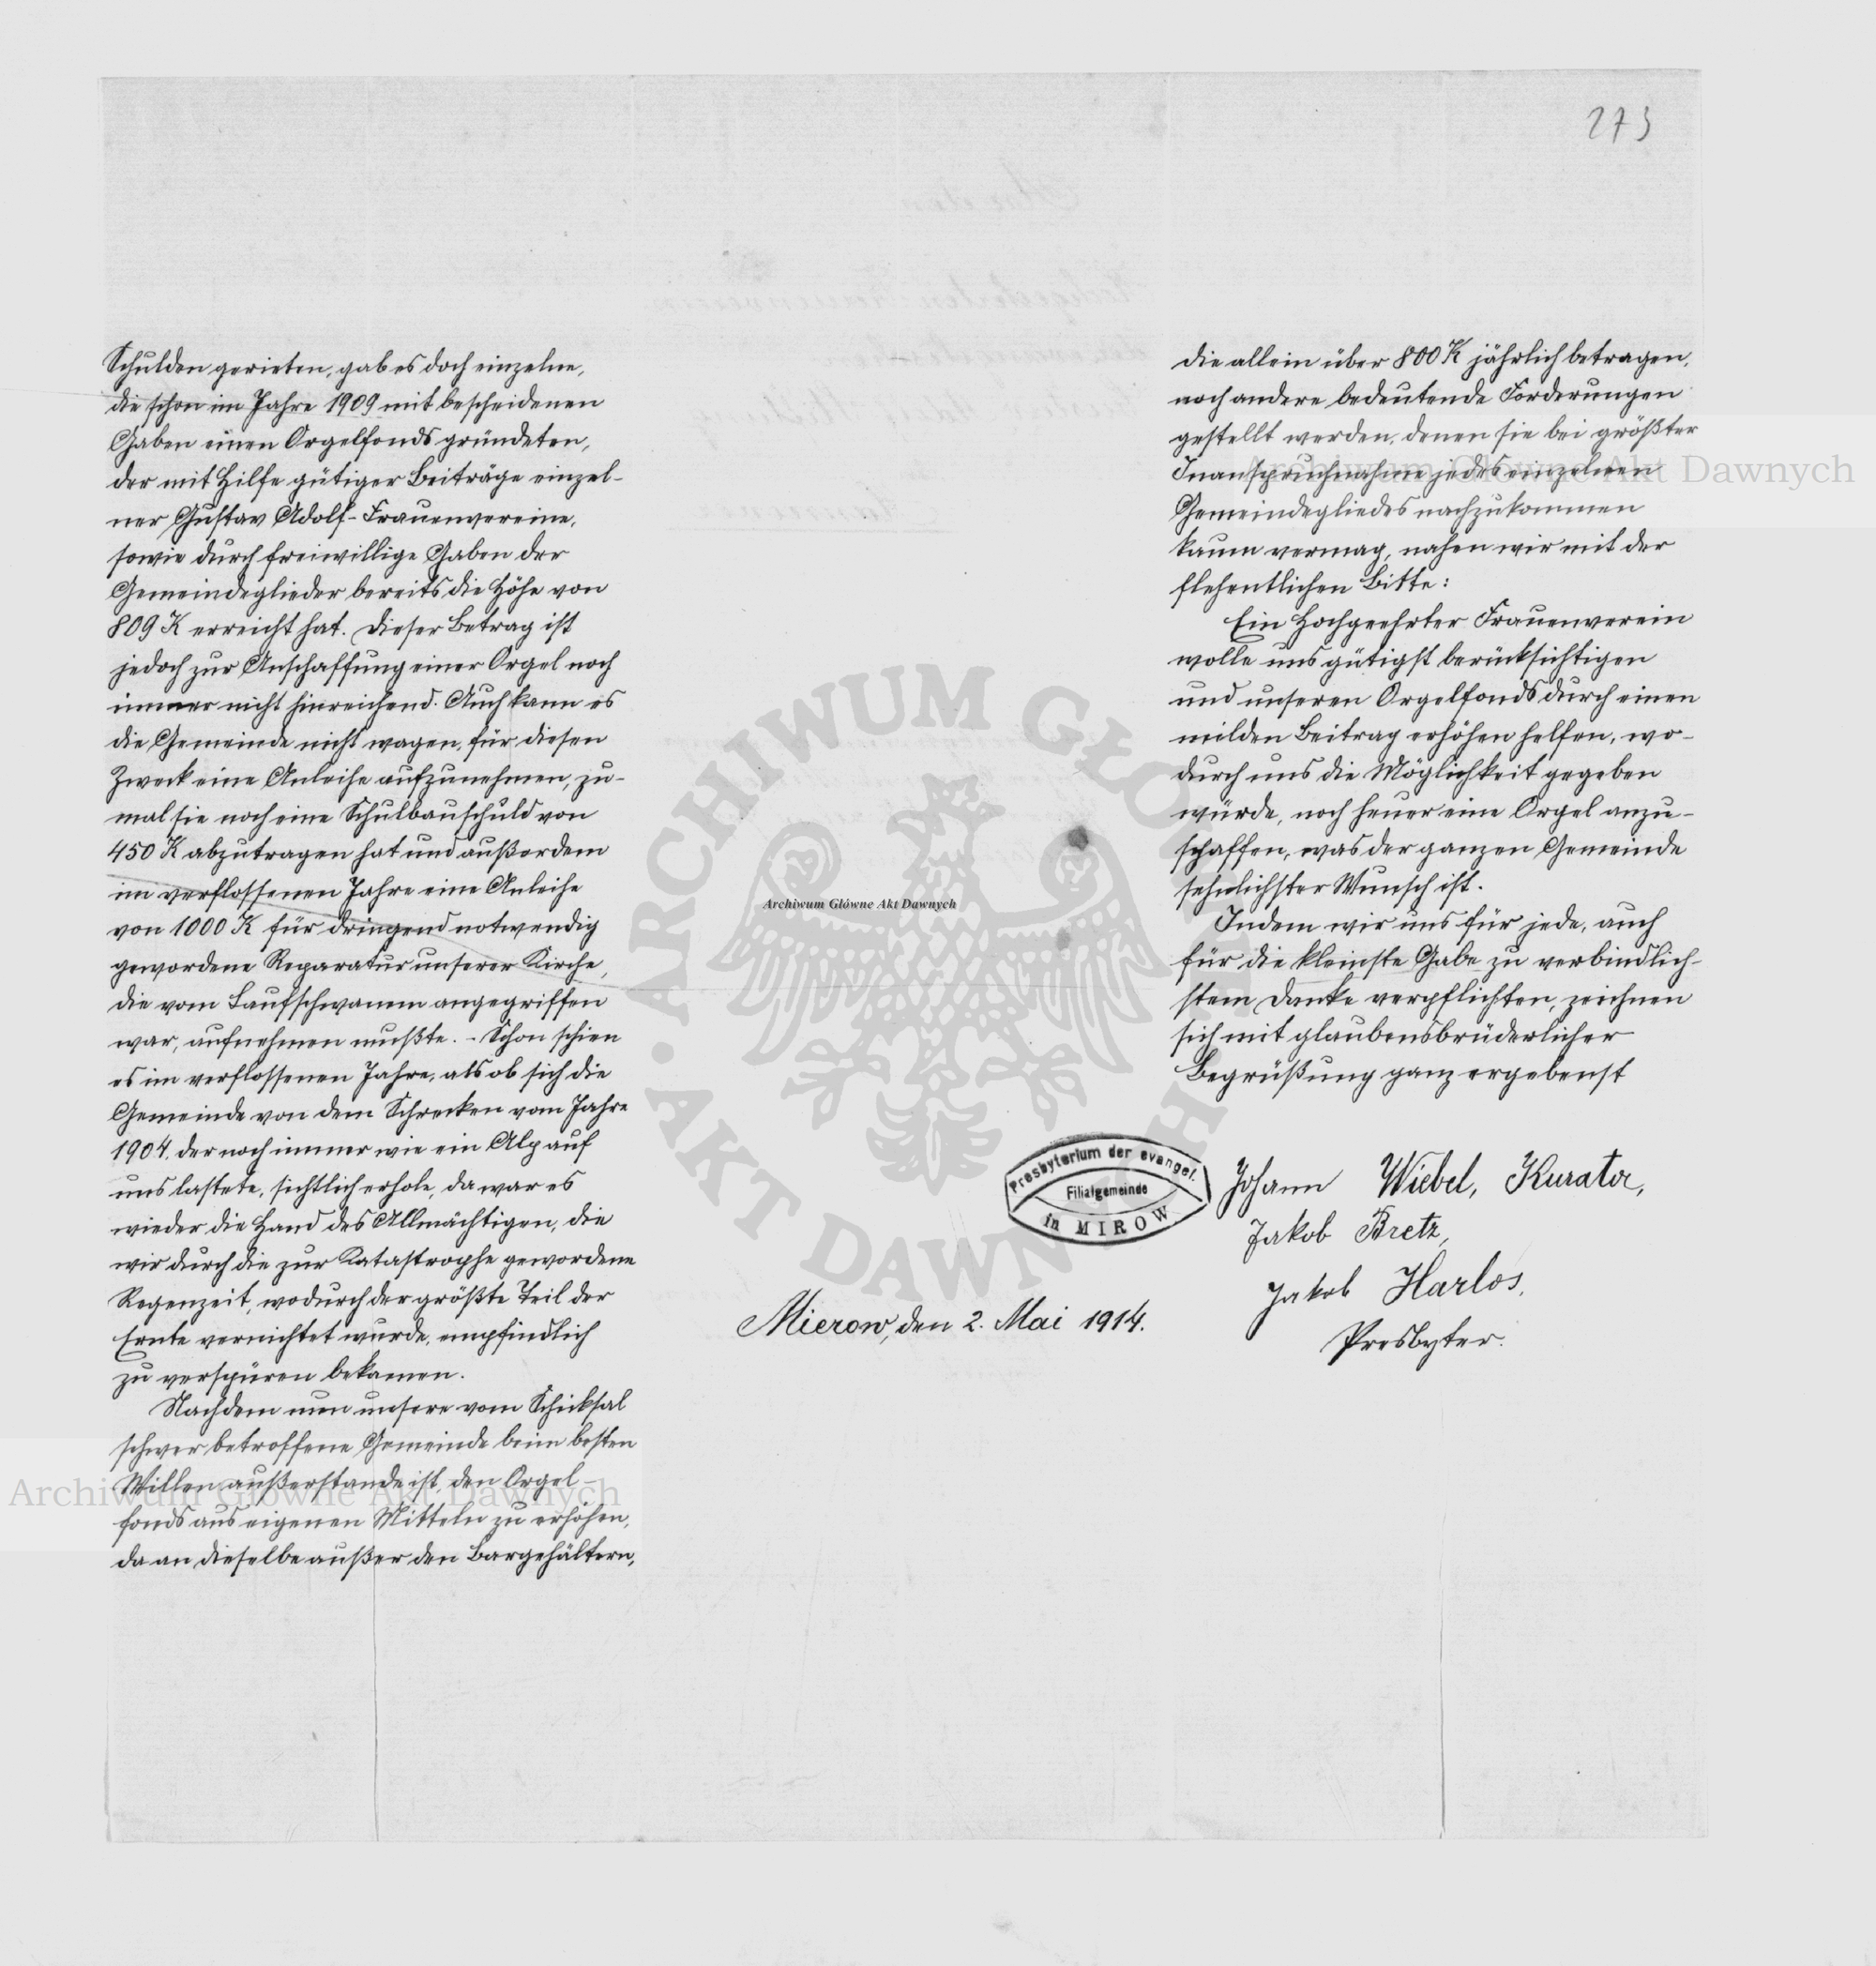 273
Schulden gerieten, gab es doch einzelne,
die schon im Jahre 1909 mit bescheidenen
Gaben einen Orgelfonds gründeten,
der mit Hilfe gütiger Beiträge einzel-
ner Gustav Adolf-Frauenvereine,
sowie durch freiwillige Gaben der
Gemeindeglieder bereits die Höhe von
809 K erreicht hat. Dieser Betrag ist
jedoch zur Anschaffung einer Orgel noch
immer nicht hinreichend. Auch kann es
die Gemeinde nicht wagen, für diesen
Zweck eine Anleihe aufzunehmen, zu-
mal sie noch eine Schulbauschuld von
450 K abzutragen hat und außerdem
im verflossenen Jahre eine Anleihe
von 1000 K für dringend notwendig
gewordene Reparatur unserer Kirche,
die vom Laufschwamm angegriffen
war, aufnehmen mußte. - Schon schien
es im verflossenen Jahre, als ob sich die
Gemeinde von dem Schrecken vom Jahre
1904, der noch immer wie ein Alp auf
uns lastete, sichtlich erhole, da war es
wieder die Hand des Allmächtigen, die
wir durch die zur Katastrophe gewordene
Regenzeit, wodurch der größte Teil der
Ernte vernichtet wurde, empfindlich
zu verspüren bekamen.
Nachdem nun unsere vom Schicksal
schwer betroffene Gemeinde beim besten
Willen außerstande ist, den Orgel-
fonds aus eigenen Mitteln zu erhöhen,
da an dieselbe außer den Bargehältern,
die allein über 800 K jährlich betragen,
noch andere bedeutende Forderungen
gestellt werden, denen sie bei größter
Inanspruchnahme jedes einzelnen
Gemeindegliedes nachzukommen
kaum vermag, nahen wir mit der
flehentlichen Bitte:
Ein Hochgeehrter Frauenverein
wolle uns gütigst berücksichtigen
und unseren Orgelfonds durch einen
milden Beitrag erhöhen helfen, wo-
durch uns die Möglichkeit gegeben
würde, noch heuer eine Orgel anzu-
schaffen, was der ganzen Gemeinde
sehnlichster Wunsch ist.
Indem wir uns für jede, auch
für die kleinste Gabe zu verbindlich-
stem Danke verpflichten, zeichnen
sich mit glaubensbrüderlicher
Begrüßung ganz ergebenst
Presbyterium der evangel.
Filialgemeinde
in MIROW
Johann Wiebel, Kurator,
Jakob Bretz,
Jakob Harlos,
Presbyter.
Mierow, den 2. Mai 1914.
ARCHIWUM GŁÓWNE
AKT DAWNYCH
Archiwum Główne Akt Dawnych
Archiwum Główne Akt Dawnych
Archiwum Główne Akt Dawnych